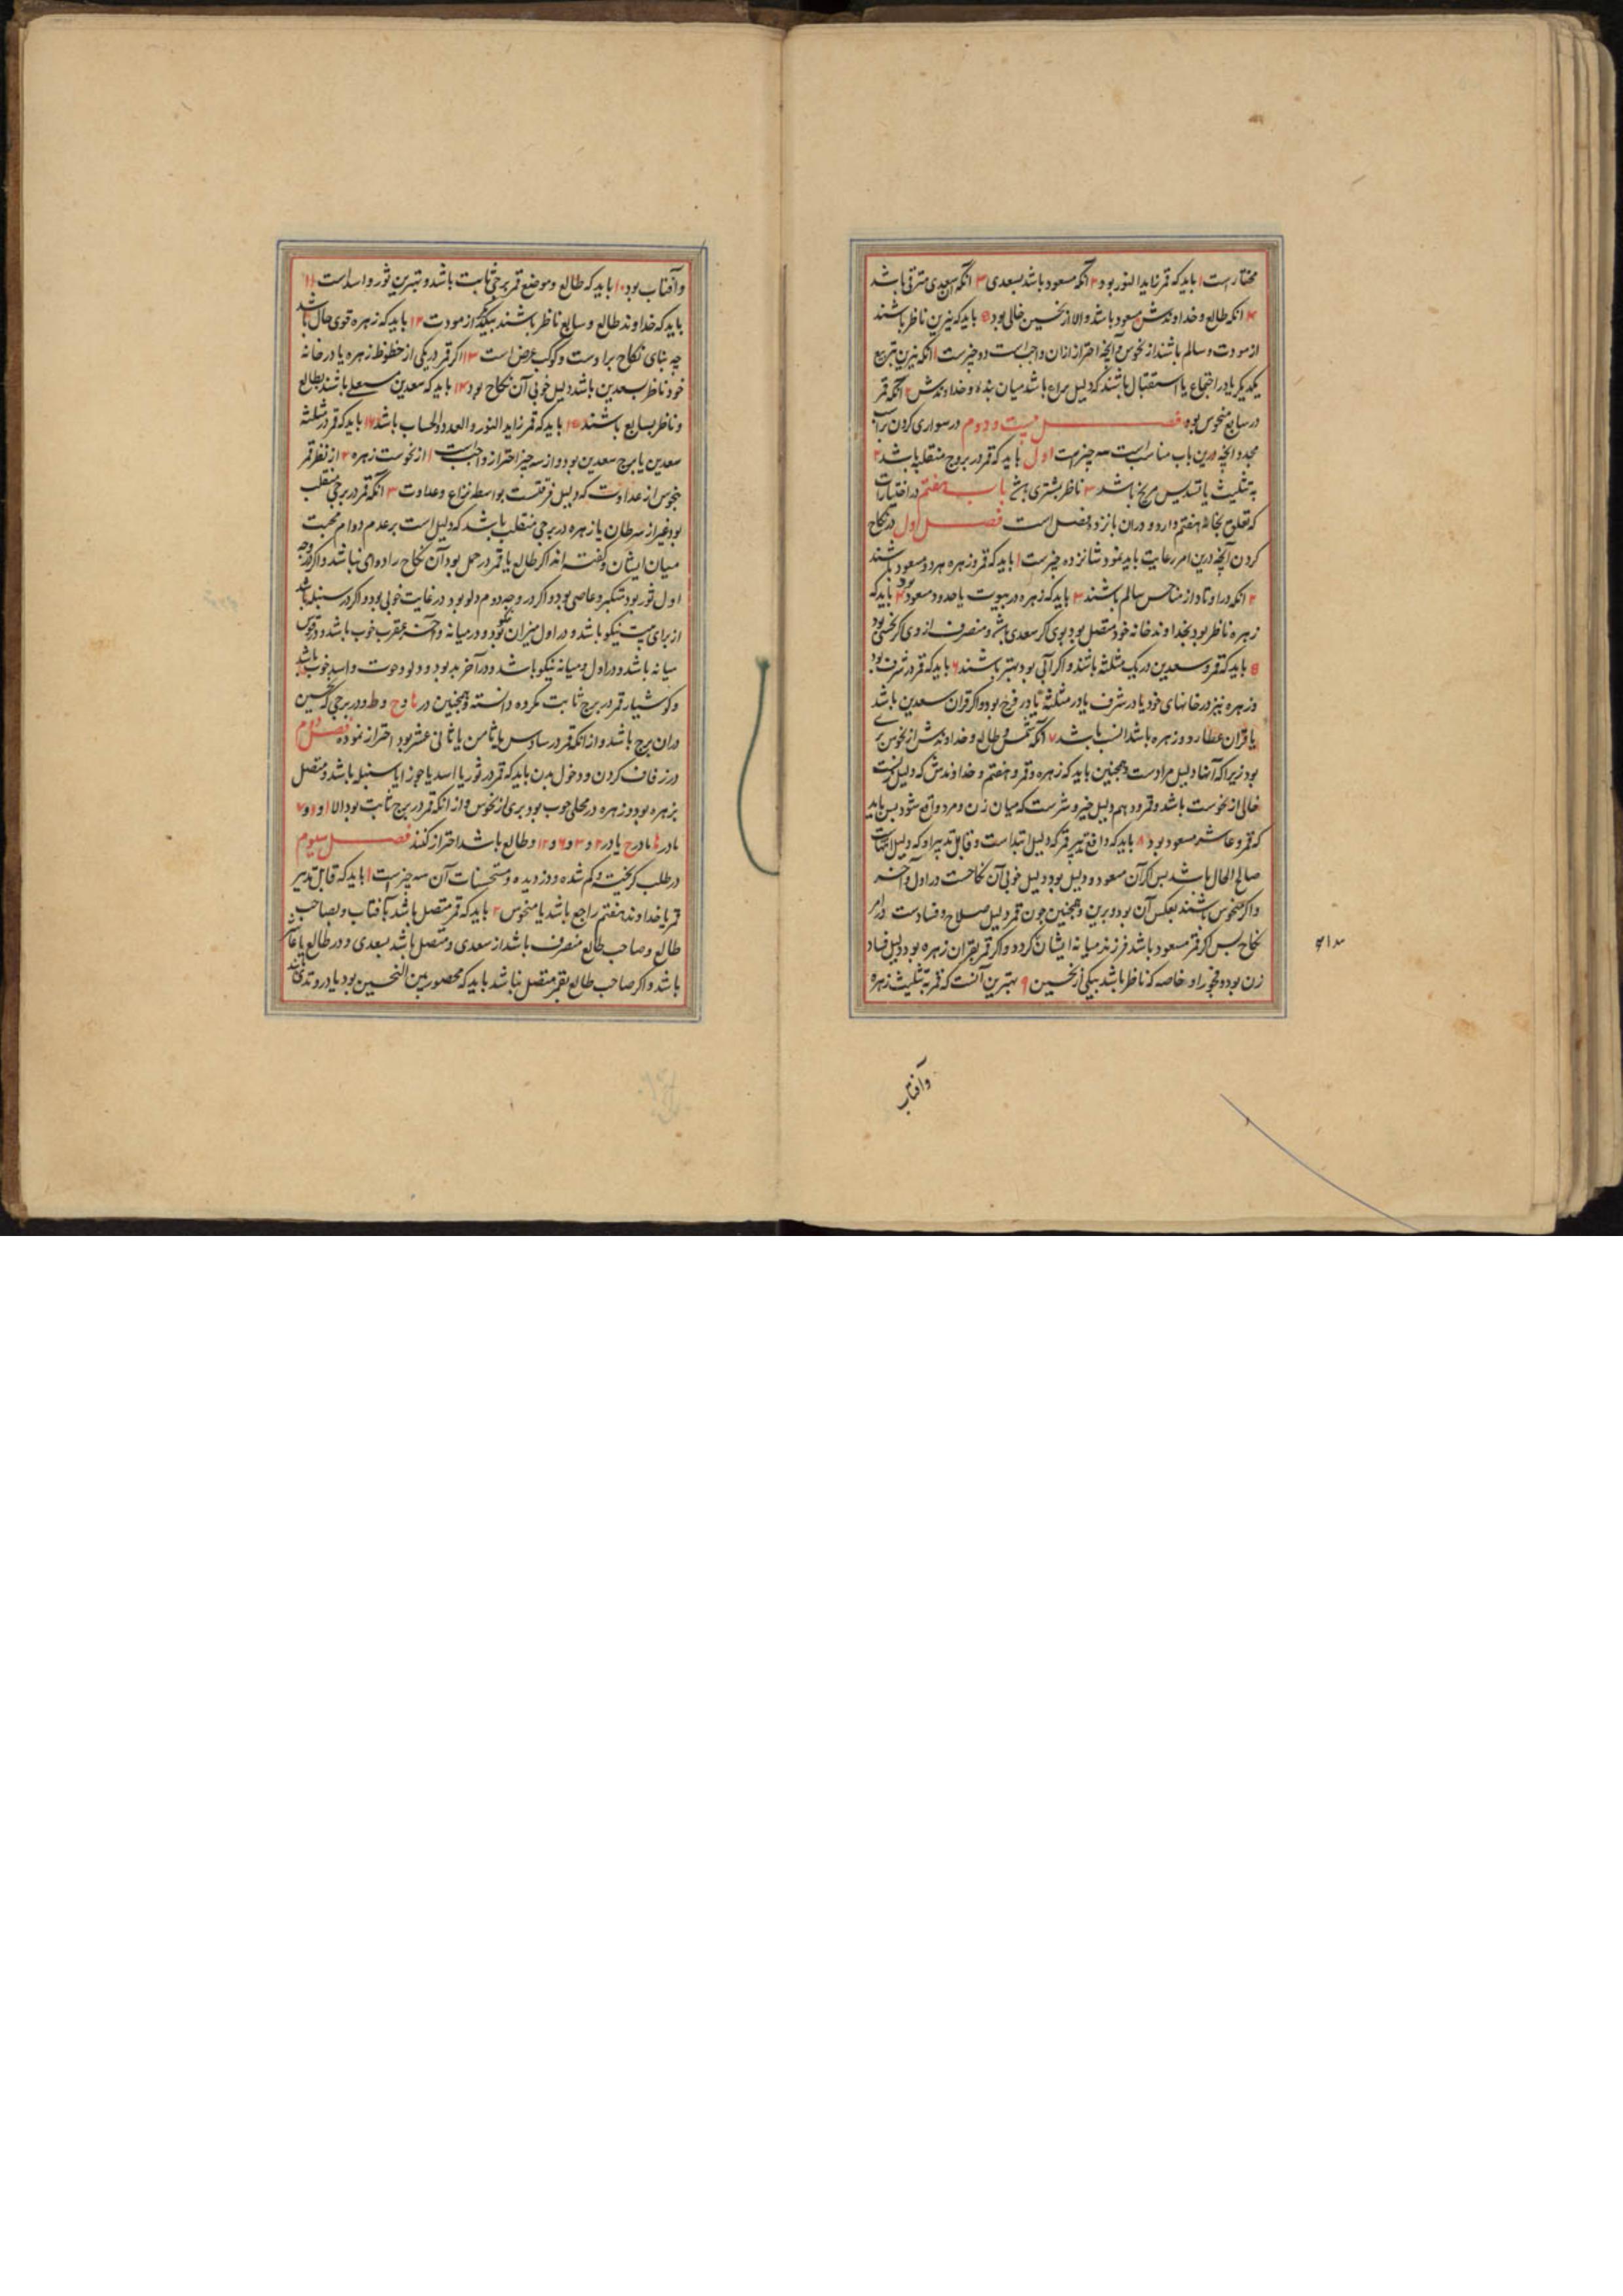 مختارست ۱ باید که قمر زاید النور بود ۲ آنکه مسعود باشد بسعدی ۳ آنکه آن سعدی مترقی باشد
۴ آنکه طالع و خداوندش مسعود باشد والا از نحسین خالی بود ۵ باید که نیرین ناظر باشند
از مودت و سالم باشند از نحوس و آنچه احتراز ازان واجبست دو چیزست ۱ آنکه نیرین بتربیع
یکدیگر یا در اجتماع یا استقبال باشند که دلیل نزاع باشد میان بنده و خداوندش ۲ آنکه قمر
در سابع منحوس بود فصل بیست و دوم در سواری کردن بر اسب
مجدد آنچه درین باب مناسبست سه چیزست اول باید که قمر در بروج منقلبه باشد ۲
به تثلیث یا تسدیس مریخ باشد ۳ ناظر بمشتری باشد باب هفتم در اختیارات
که تعلق بخانه هفتم دارد و دران پانزده فصل است فصل اول در نکاح
کردن آنچه درین امر رعایت باید نمود شانزده چیزست ۱ باید که قمر و زهره هر دو مسعود باشند
۲ آنکه در اوتاد از مناحس سالم باشند ۳ باید که زهره در بیوت یا حدود مسعود بود ۴ باید که
زهره ناظر بود بخداوند خانه خود متصل بود بوی گر سعدی باشد و منصرف از وی اگر نحسی بود
۵ باید که قمر و سعدین در یک مثلثه باشند و اگر آبی بود بهتر باشند ۶ باید که قمر در شرف بود
و زهره نیز در خانهای خود یا در شرف یا در مثلثه یا در فرح بود و اگر قران سعدین باشد
یا قران عطارد و زهره باشد انسب باشد ۷ آنکه شمس و طالع و خداوندش از نحوس بری
بود زیرا که آنها دلیل مرادست و همچنین باید که زهره و قمر و هفتم و خداوندش که دلیل زنست
خالی از نحوست باشد و قمر و دهم دلیل خیر و شرست که میان زن و مرد واقع شود پس باید
که قمر و عاشر مسعود بود ۸ باید که دافع تدبیر قمر که دلیل ابتداست و قابل تدبیر او که دلیل انتهاست
صالح الحال باشد پس اگر آن مسعود و دلیل بود دلیل خوبی آن نکاحست در اول و آخر
و اگر منحوس باشند بعکس آن بود و برین و همچنین چون قمر دلیل صلاح و فسادست در امر
نکاح پس اگر قمر مسعود باشد فرزند میانه ایشان گردد و اگر قمر بقران زهره بود دلیل فساد
زن بود و فجور او خاصه که ناظر باشد بیکی از نحسین ۹ بهترین آنست که قمر به تثلیث زهره
وآفتاب
و آفتاب بود ۱۰ باید که طالع و موضع قمر برجی ثابت باشد و بهترین ثور و اسد است ۱۱
باید که خداوند طالع و سابع ناظر باشند بیکدیگر از مودت ۱۲ باید که زهره قوی حال باشد
چه بنای نکاح بر اوست و کوکب عرض است ۱۳ اگر قمر در یکی از حظوظ زهره یا در خانه
خود ناظر بسعدین باشد دلیل خوبی آن نکاح بود ۱۴ باید که سعدین مستعلی باشند بطالع
و ناظر بسابع باشند ۱۵ باید که قمر زاید النور و العدد والحساب باشد ۱۶ باید که قمر در مثلثه
سعدین یا برج سعدین بود و از سه چیز احتراز واجبست ۱ از نحوست زهره ۲ از نظر قمر
بنحوس از عداوت که دلیل فرقتست بواسطه نزاع و عداوت ۳ آنکه قمر در برجی منقلب
بود غیر از سرطان یا زهره در برجی منقلب باشد که دلیل است بر عدم دوام محبت
میان ایشان و گفته اند اگر طالع یا قمر در حمل بود آن نکاح را دوامی نباشد و اگر در وجه
اول ثور بود متکبر و عاصی بود و اگر در وجه دوم دلو بود در غایت خوبی بود و اگر در سنبله باشد
از برای نیکو باشد و در اول میزان نیکو بود و در میانه و آخر عقرب خوب باشد و در قوس
میانه باشد و در اول و میانه نیکو باشد و در آخر بد بود و دلو و حوت و اسد خوب باشد
و کوشیار قمر در برج ثابت مکروه دانسته و همچنین در ط و ح و ط و در برجی که نحسین
دران برج باشد و از آنکه قمر در سادس یا ثامن یا ثانی عشر بود احتراز نموده فصل دوم
در زفاف کردن و دخول بدن باید که قمر در ثور یا اسد یا جوزا یا سنبله باشد و متصل
بزهره بود و زهره در محلی خوب بود بری از نحوس و از آنکه قمر در برج ثابت بود الا ۱ و ۴ و ۷
یا در ط یا در ح یا در ۲ و ۳ و ۶ و ۱۲ و طالع باشد احتراز کنند فصل سیوم
در طلب گریخته و گم شده و دزدیده و مستحسنات آن سه چیزست ۱ باید که قابل تدبیر
قمر یا خداوند هفتم راجع باشد یا منحوس ۲ باید که قمر متصل باشد بآفتاب و بصاحب
طالع و صاحب طالع منصرف باشد از سعدی و متصل باشد بسعدی و در طالع یا عاشر
باشد و اگر صاحب طالع بقمر متصل نباشد باید که محصور بین النحسین بود یا در وتدی باشد